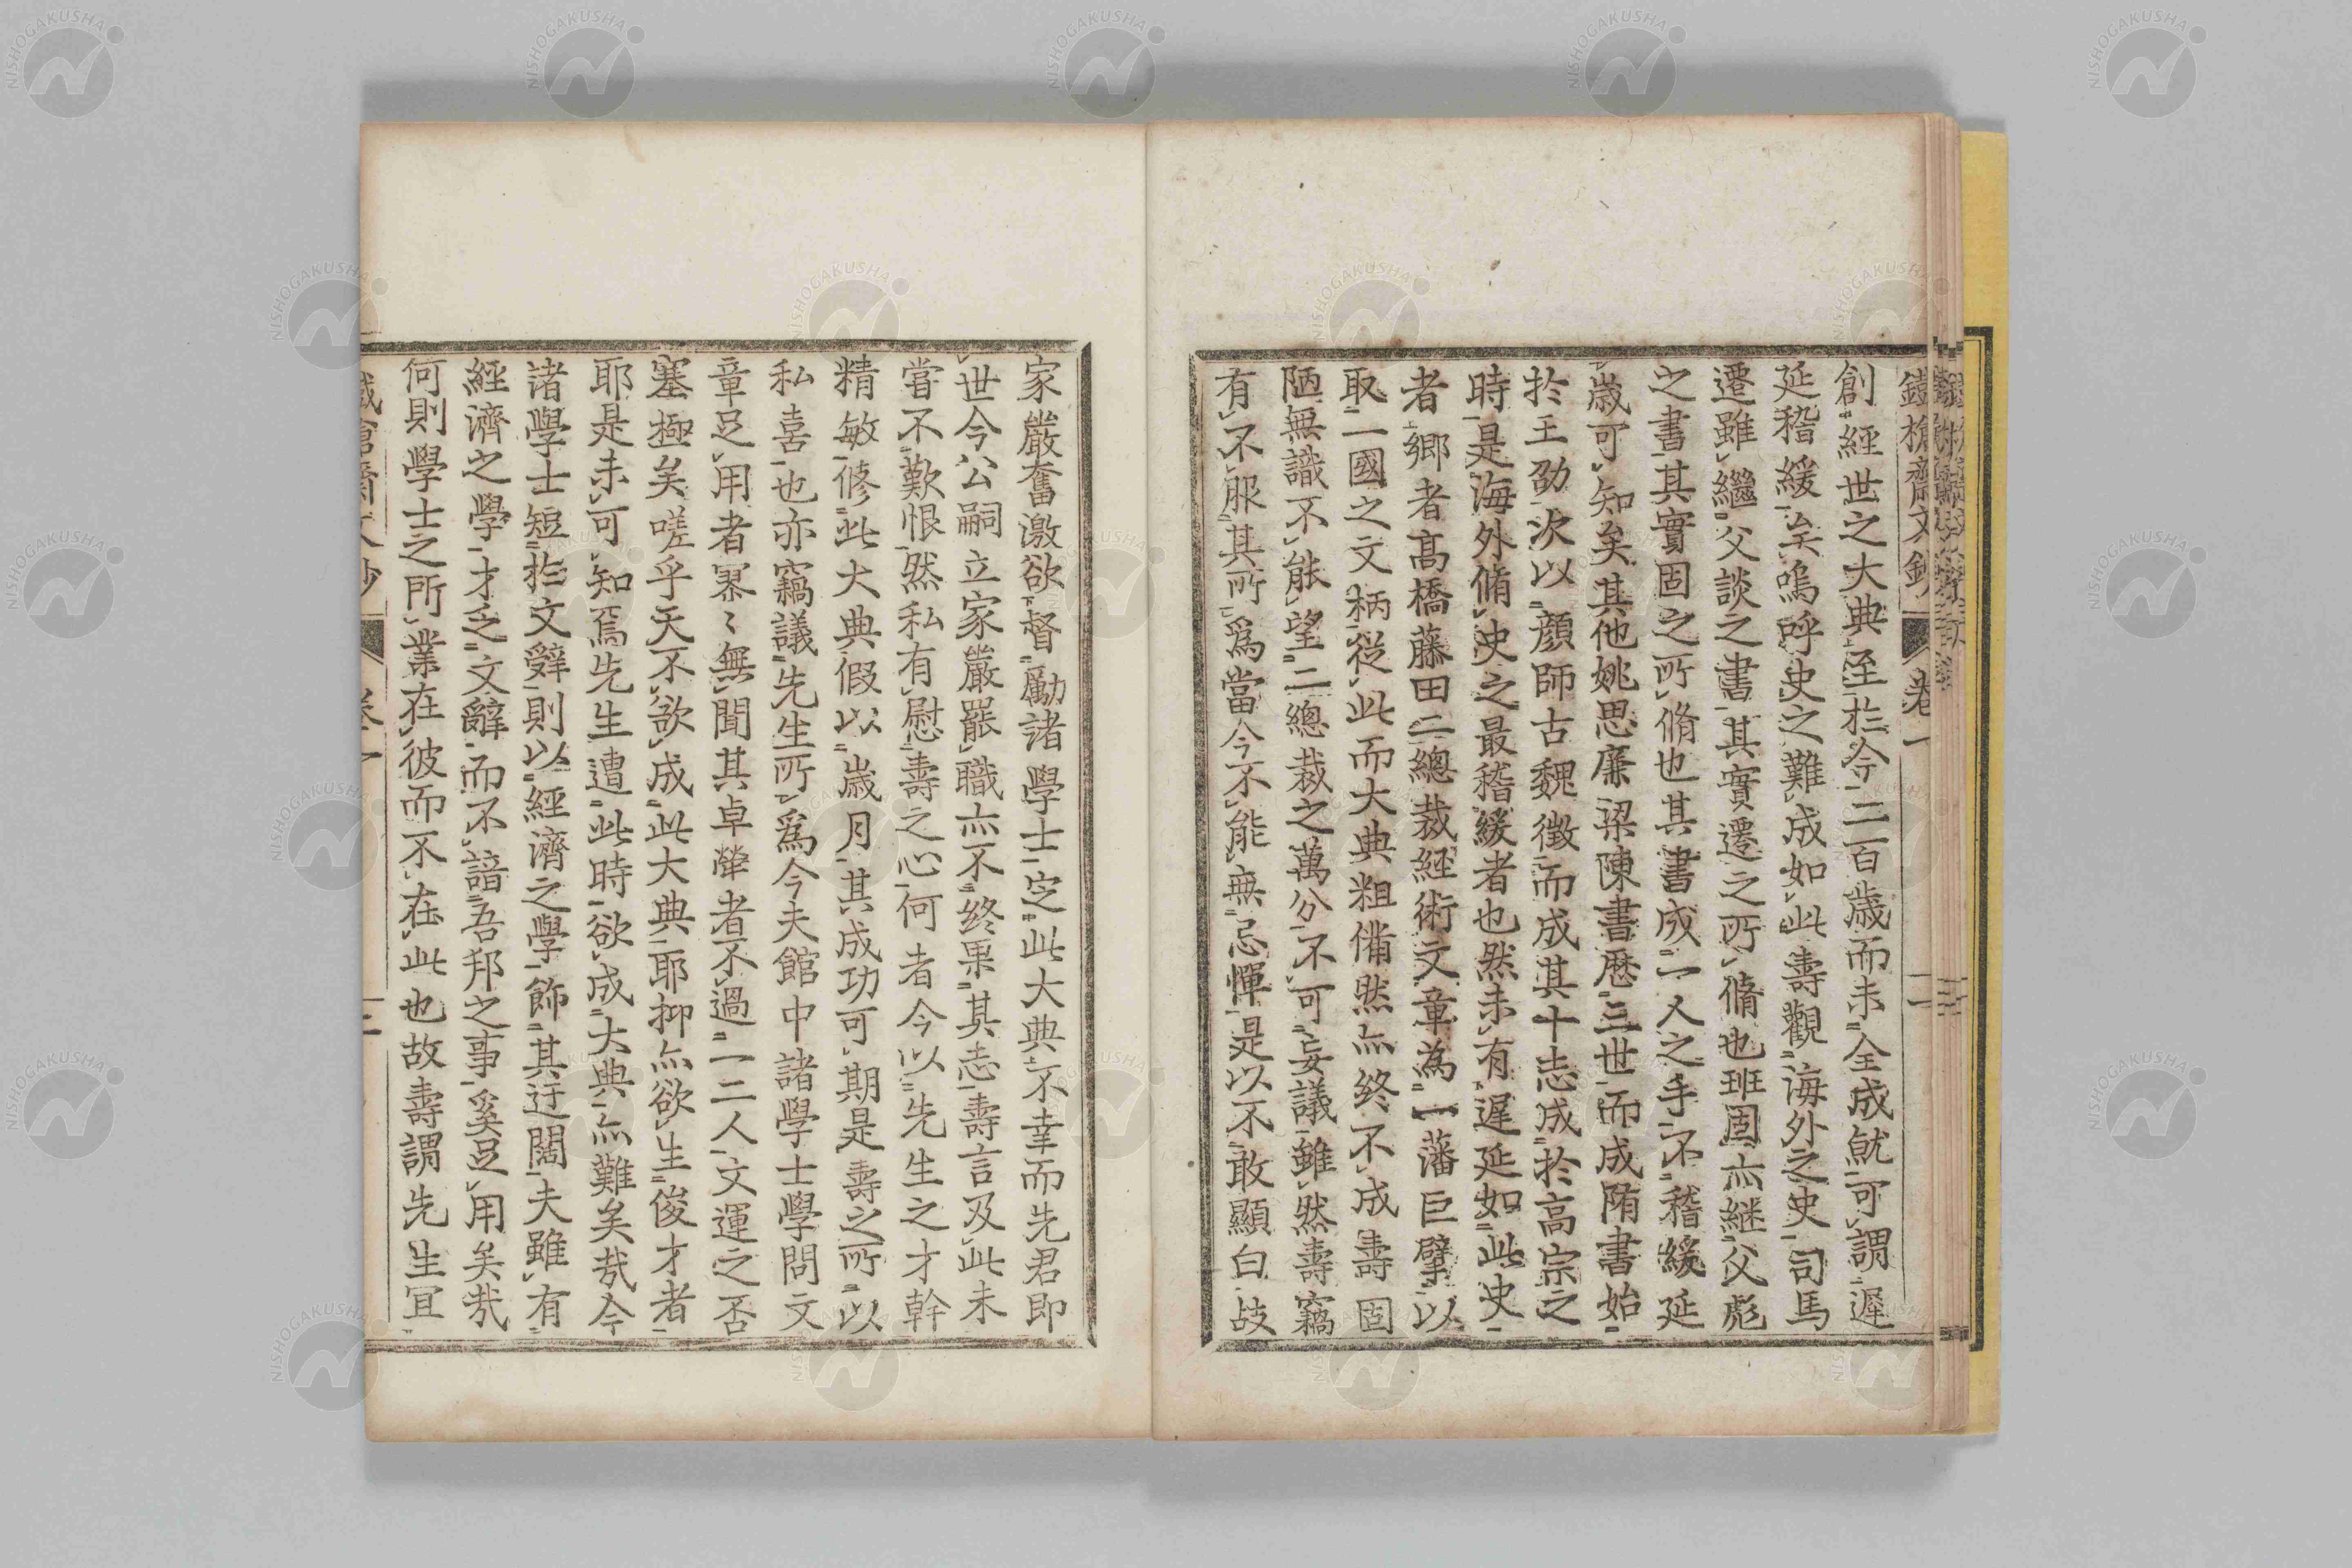 鐵槍齋文鈔 卷一 二
創經世之大典至於今二百歲而未全成就可謂遲
延稽緩矣嗚呼史之難成如此壽觀海外之史司馬
遷雖繼父談之書其實遷之所脩也班固亦継父彪
之書其實固之所脩也其書成一人之手不稽緩延
歲可知矣其他姚思廉梁陳書歷三世而成隋書始
於王劭次以顏師古魏徵而成其十志成於高宗之
時是海外脩史之最稽緩者也然未有遲延如此史
者鄉者高橋藤田二總裁經術文章為一藩巨擘以
取二國之文柄從此而大典粗備然亦終不成壽固
陋無識不能望二總裁之萬分不可妄議雖然壽竊
有不服其所爲當今不能無忌憚是以不敢顯白故
家嚴奮激欲督勵諸學士定此大典不幸而先君即
世今公嗣立家嚴罷職亦不終果其志壽言及此未
嘗不歎恨然私有慰壽之心何者今以先生之才幹
精敏修此大典假以歲月其成功可期是壽之所以
私喜也亦竊議先生所爲今夫館中諸學士學問文
章足用者寥〻無聞其卓犖者不過一二人文運之否
塞極矣嗟乎天不欲成此大典耶抑亦欲生俊才者
耶是未可知焉先生遭此時欲成大典亦難矣哉今
諸學士短於文辭則以經濟之學飾其迂闊夫雖有
經濟之學才乏文辭而不諳吾邦之事奚足用矣哉
何則學士之所業在彼而不在此也故壽謂先生宜